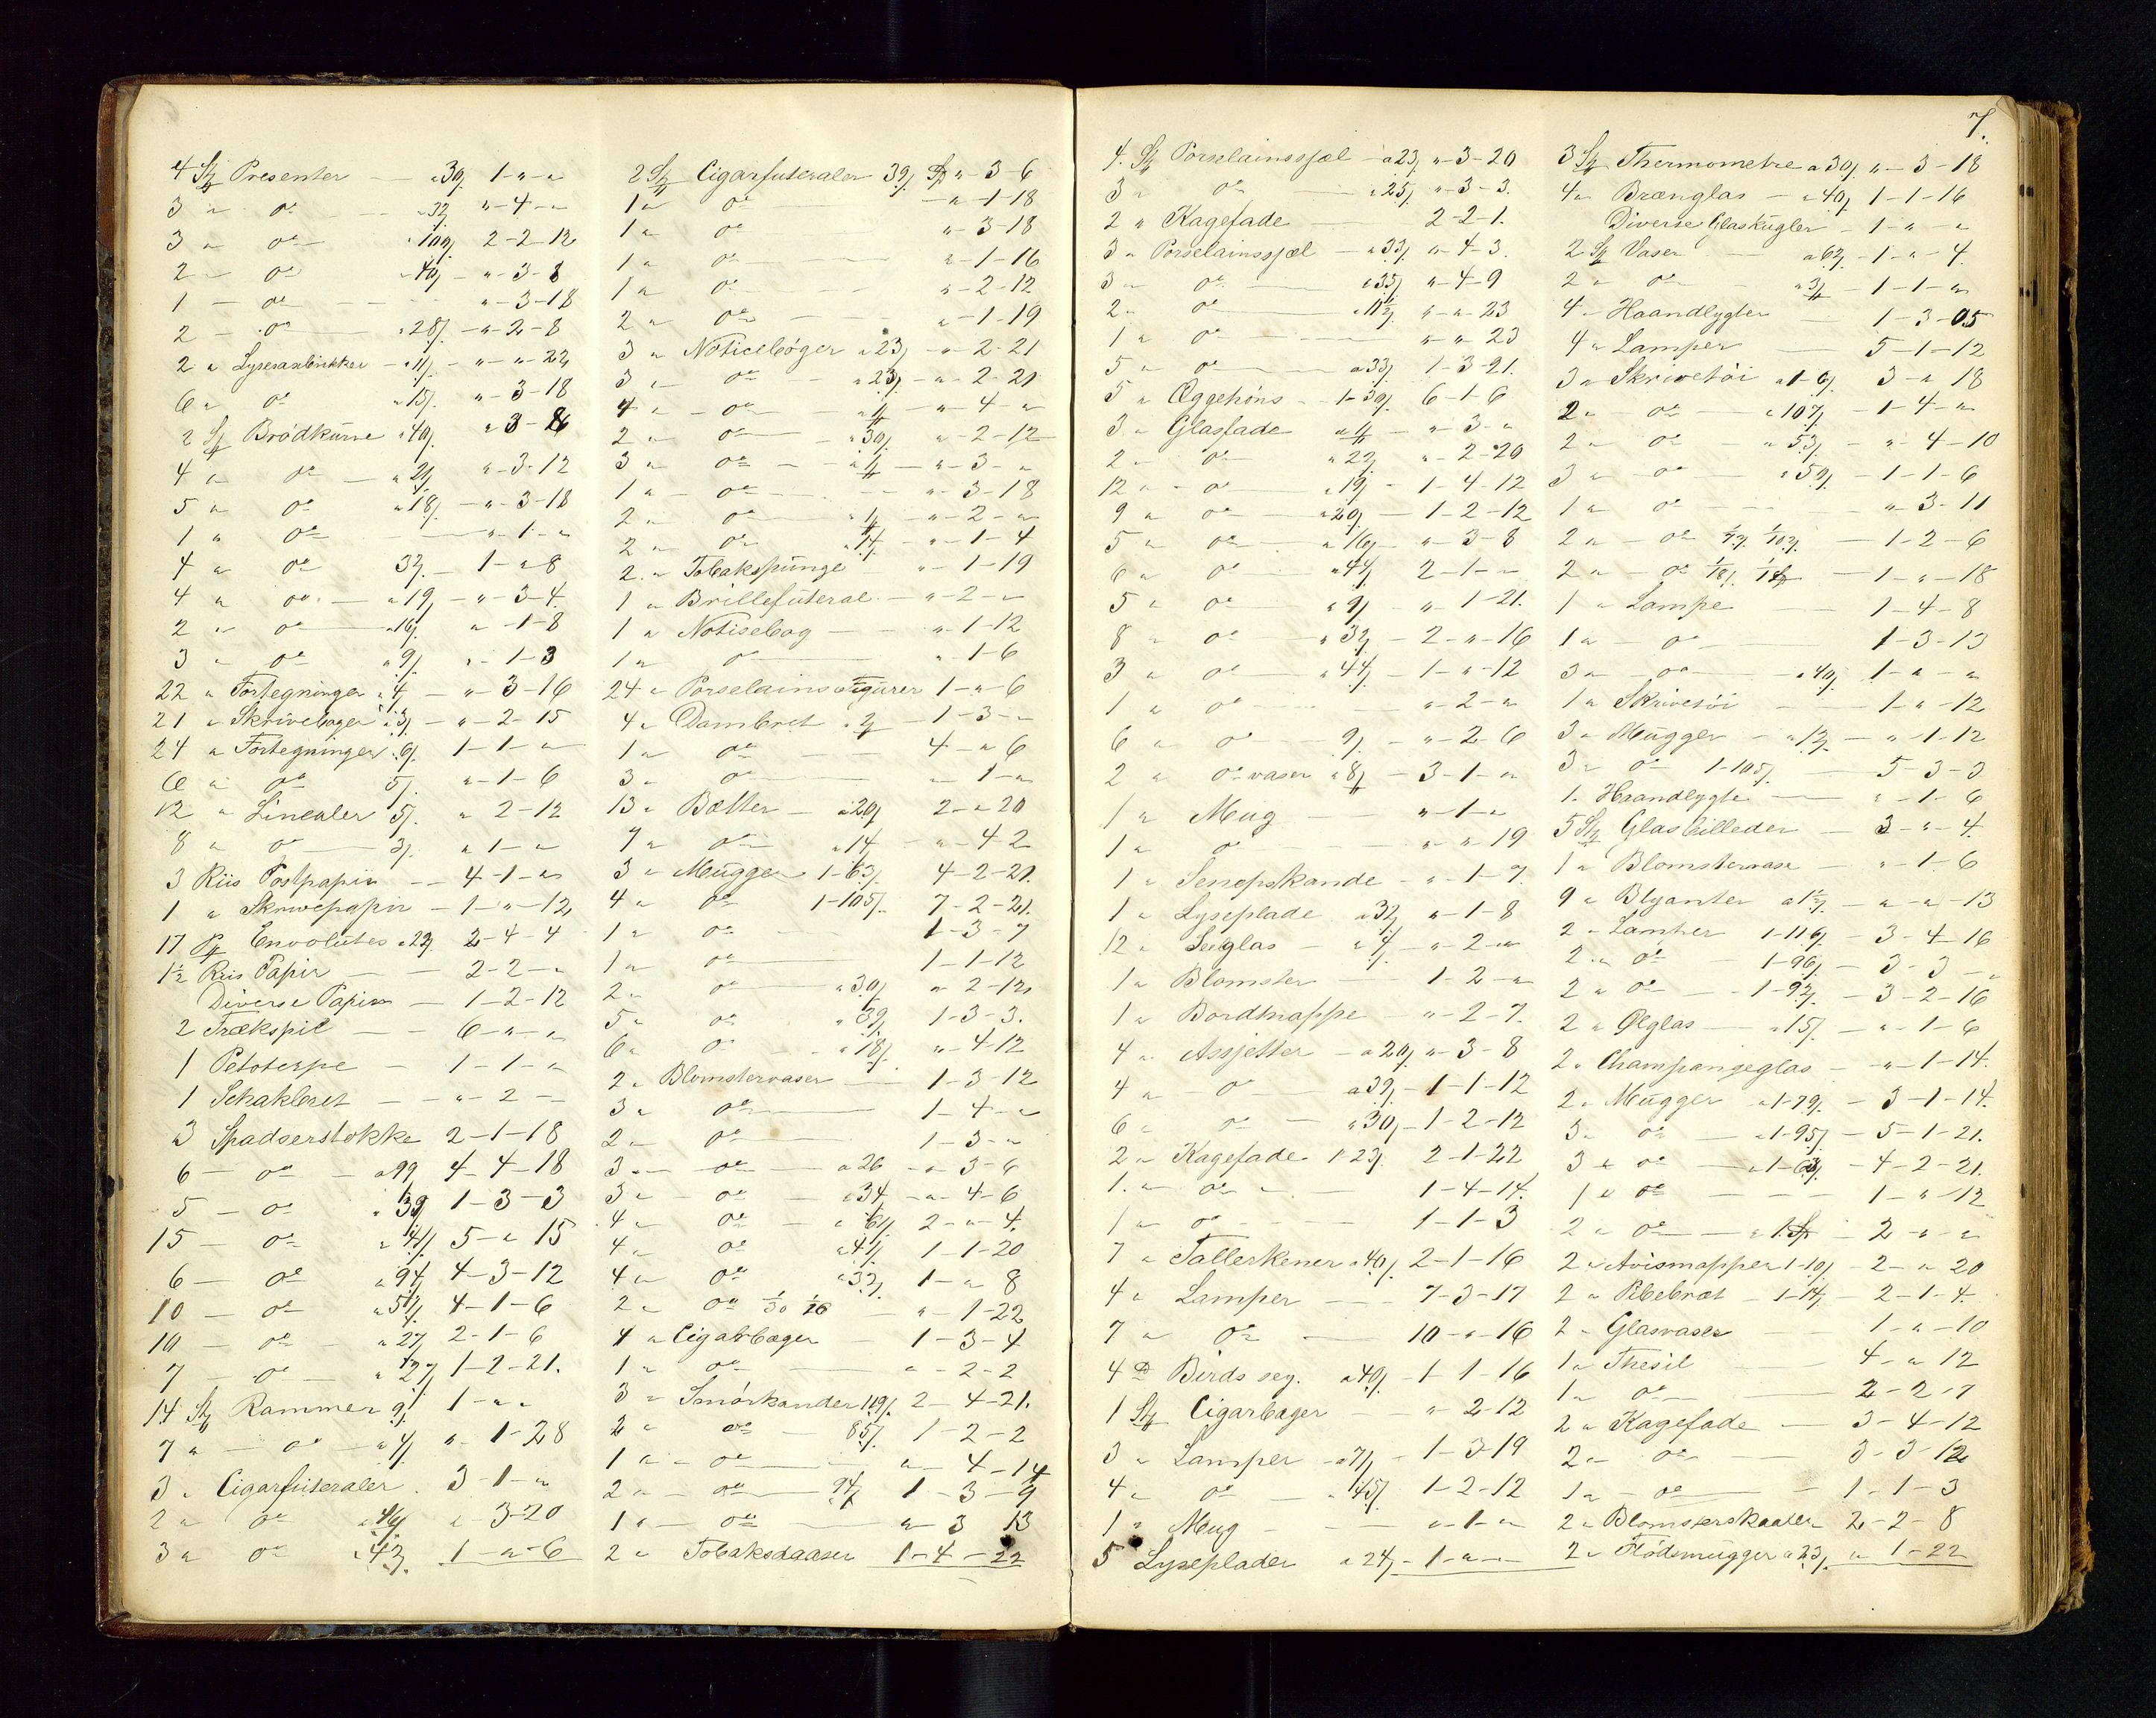 4 St Presenter — a 30/ 1-"-"
3 " do — a 32/ "-4-"
3 " do a 100/ 2-2-12
2 — do a 40/ — "-3-8
1 — do — — "-3-18
2 — do a 28/ — "-2-8
2 " — a 11/ — "-"-22
6 " do a 15/ "-3-18
2 St Brödkurve a 40/ "3-8
4 " do — a 21/ "-3-12
5 " do a 18/ — "-3-18
1 " do — "-1-"
4 " do 32/ — 1-"8
4 " do — a 19/ — "-3-4
2 " do — a 16/ "-1-8
3 " do a 9/ "-1-3
22 " Fortegninger a 4/ — "-3-16
21 " Skrivebøger a 3/ — "-2-15
24 " Fortegninger a 6/ 1-1-"
6 " do 5/ "-1-6
12 " Linealer 5/ "2-12
8 " do — 3/ "1-"
3 Riis Postpapir — 4-1-"
1 " Skrivepapir — 1-"-12
17 Pk Envolutes a 22/ 2-4-4
1½ Riis Papir — — 2-2-"
Diverse Papir — 1-2-12
2 Trækspil — — 6-"-"
1 — 1-1-"
1 Schakbret — — "-2-
3 Spadserstokke 2-1-18
6 — do — a 99/ 4-4-18
5 — do a 39/ 1-3-3
15 — do a 41/ 5-"15
6 — do a 94/ 4-3-12
10 — do a 51/ 4-1-6
10 — do — a 27/ 2-1-6
7 — do — a 27/ 1-2-21.
14 St Rammer 9/ 1-""
7 " — do — a 4/ "-1-28
3 " Cigarfuteraler. 3-1-"
2 " do a 46/ "-3-20
3 " do a 42/ 1-"-6
2 St Cigarfuteraler 39/ Sp "-3-6
1 " do — — "-1-18
1 " do — "-3-18
1 " do — "-1-16
1 " do — — "-2-12
2 " do — — "-1-19
3 " Noticebøger a 23/ — "-2-21
3 " do — a 23/ — "-2-21
4 " — do — "-4-"
2 " do — a 30/ "-2-12
3 " do — — "-3-"
1 " — do — — "-3-18
2 " do — "-2-"
2 " do a 14/ — "-1-4
2 " Tobakspunge "-1-19
1 " Brillefuteral — "-2-"
1 " Notisebog — — "-1-12
1 " do — "-1-6
24 " Porselainsfigurer 1-"-6
4 " Dambret — 1-3-"
1 " do — — 4-"6
3 " do — "-1-"
13 " Bøtter — a 20/ 2-"20
7 " do — a 14/ — "-4-2
3 " Mugger 1-63/ 4-2-21.
4 " do 1-105/ 7-2-21.
1 " do — 1-3-7
1 " do — 1-1-12
2 " do — a 30/ "-2-12
5 " do — a 39/ 1-3-3.
6 " do — a 18/ "-4-12
2 " Blomstervaser — 1-3-12
3 " do — 1-4-"
2 " do — 1-3-"
3 " — do — a 26 — "3-6
3 " — do — a 34/ — "-4-6
4 " do — a 61/ 2-"-4.
4 " do a 41/ 1-1-20
4 " do — a 32/ 1-"8
2 " do 1/30 1/16 — "1-22
4 " Cigarbæger — 1-3-4
1 " do — "-2-2
3 " Smörkander 119/ 2-4-21.
2 " do — 85/ 1-2-2
1 " — do — "-4-14
2 " — do — 94/ 1-3-9
1 " — do — "-3 13
2 " Tobaksdaaser 1-4-22
7.
4. St Porselainssjæl — a 23/ "-3-20
3 " do — a 25/ "-3-3.
2 " Kagefade — 2-2-1.
3 " Porselainssjæl — a 33/ "-4-3.
3 " do — a 35/ "-4-9
2 " do — a 11½/ "-"-23
1 " do — "-"23
5 " do — a 33/ 1-3-21.
5 " Æggehöns — 1-30/ 6-1-6
3 " Glasfade — "-3-"
2 " do a 22/ "-2-20
12 " — do — a 19/ — 1-4-12
9 " do — a 20/ — 1-2-12
5 " do — a 16/ — "-3-8
6 " do — a 44/ 2-1-"
5 " do — a 9/ — "-1-21.
8 " do — a 32/ — 2-"-16
3 " do — a 44/ — 1-"-12
1 " do — "-2-"
6 " do — 9/ — "-2-6
2 " do vaser — 3-1-"
1 " Mug — "-1-"
1 " do — "-"19
1 " Senepskande — "-1-7.
1 " Lyseplade. a 32/ "-1-8
12 " — a 4/ — "-2-"
1 " Blomster — 1-2-"
1 " Bordknappe — "-2-7.
4 " Assjetter — a 20/ "-3-8
4 " — do — a 39/ — 1-1-12
6 " do — a 30/ — 1-2-12
2 " Kagefade 1-23/ 2-1-22
1. " do — 1-4-14.
1 " do — 1-1-3
7 " Tallerkener a 40/ 2-1-16
4 " Lamper — — 7-3-17
7 " do — 10-"-16
4 D Birds seg. a 40/ — 1-1-16
1 St Cigarbæger — "-2-12
3 " Lamper — a 71/ — 1-3-19
4 " do — a 45/ 1-2-12
1 " Mug — — "-1-"
5 Lyseplader a 24/ — 1-"-"
3 St Thermometre a 30/ "-3-18
4 " Brænglas — a 40/ 1-1-16
Diverse Glaskugler — 1-"-"
2 St Vaser — a 62/ — 1-"-4.
2 " do — — 1-1-"
4 " Haandlygter — 1-3-05
4 " Lamper — 5-1-12
3 " Skrivetöi a 1-6/ 3-"18
2 " do — a 107/ — 1-4-"
2 " do — a 53/ — "-4-10
3 " — do — a 50/ — 1-1-6
1 " do — — "-3-11
2 " — do — 1-2-6
2 " — do — 1-"-18
1 " Lampe — 1-4-8
1 " — do — 1-3-13
3 " — do — a 40/ 1-"-"
1 " Skrivetöi — 1-"-12
3 " Mugger — a 12/ — "-1-12
3 " do 1-105/ — 5-3-3
1. Haandlygte — "-1-6
5 St Glasbilleder — 3-"-4.
1 " Blomstervase — "-1-6
9 " Blyanter a 1½/ — "-"-13
2 " Lamper 1-116/ — 3-4-16
2 " do — 1-96/ — 3-3-"
2 " do — 1-92/ — 3-2-16
2 " Ølglas — a 15/ — "-1-6
2 " Champangeglas — "-1-14.
2 " Mugger a 1-79/ — 3-1-14.
3 " do — a 1-95/ — 5-1-21.
3 " do — a 1-63/ — 4-2-21.
1 " do — — 1-"-12
2 " do — a 1 Sp — 2-"-"
2 " Avismapper 1-10/ — 2-"20
2 " Pibebræt — 1-14/ — 2-1-4.
2 " Glasvaser 1-"-10
1 " Thesil — 4-"12
1 " do — 2-2-7
2 " Kagefade — 3-4-12
2 " do — 3-3-12
1 " — do — 1-1-3
2 " Blomsterskaaler 2-2-8
2 " Flødemugger a 23/ "1-22